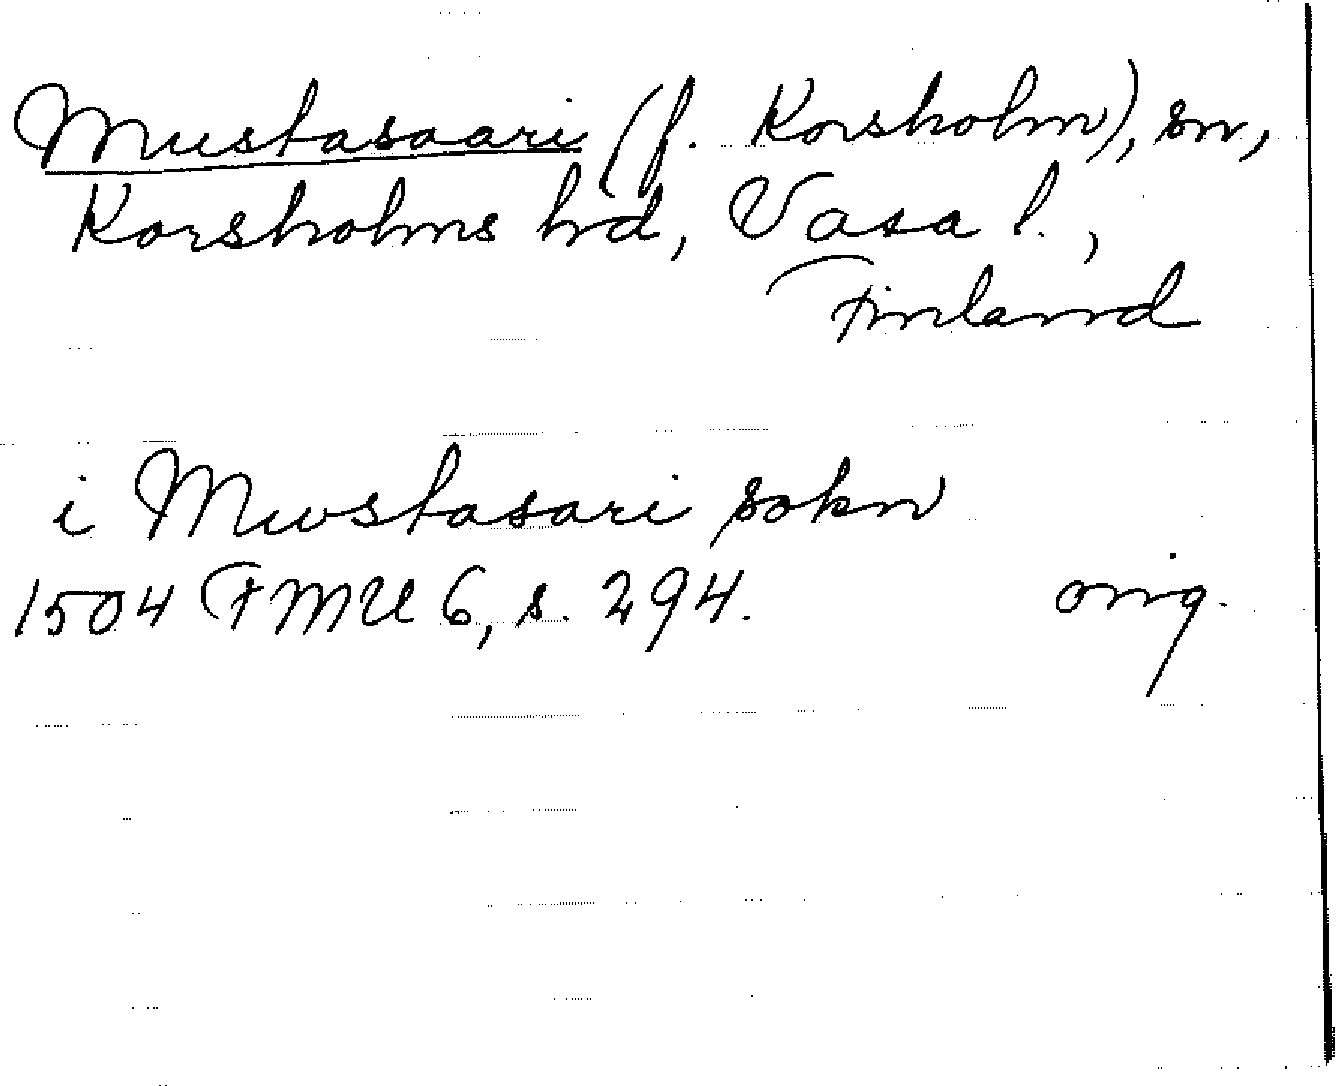 Mustasaari (f. Korsholm), sn,
Korsholms hd, Vasa l.,
Finland
i Mwstasari sokn
1504 FMU 6, s. 294. orig.